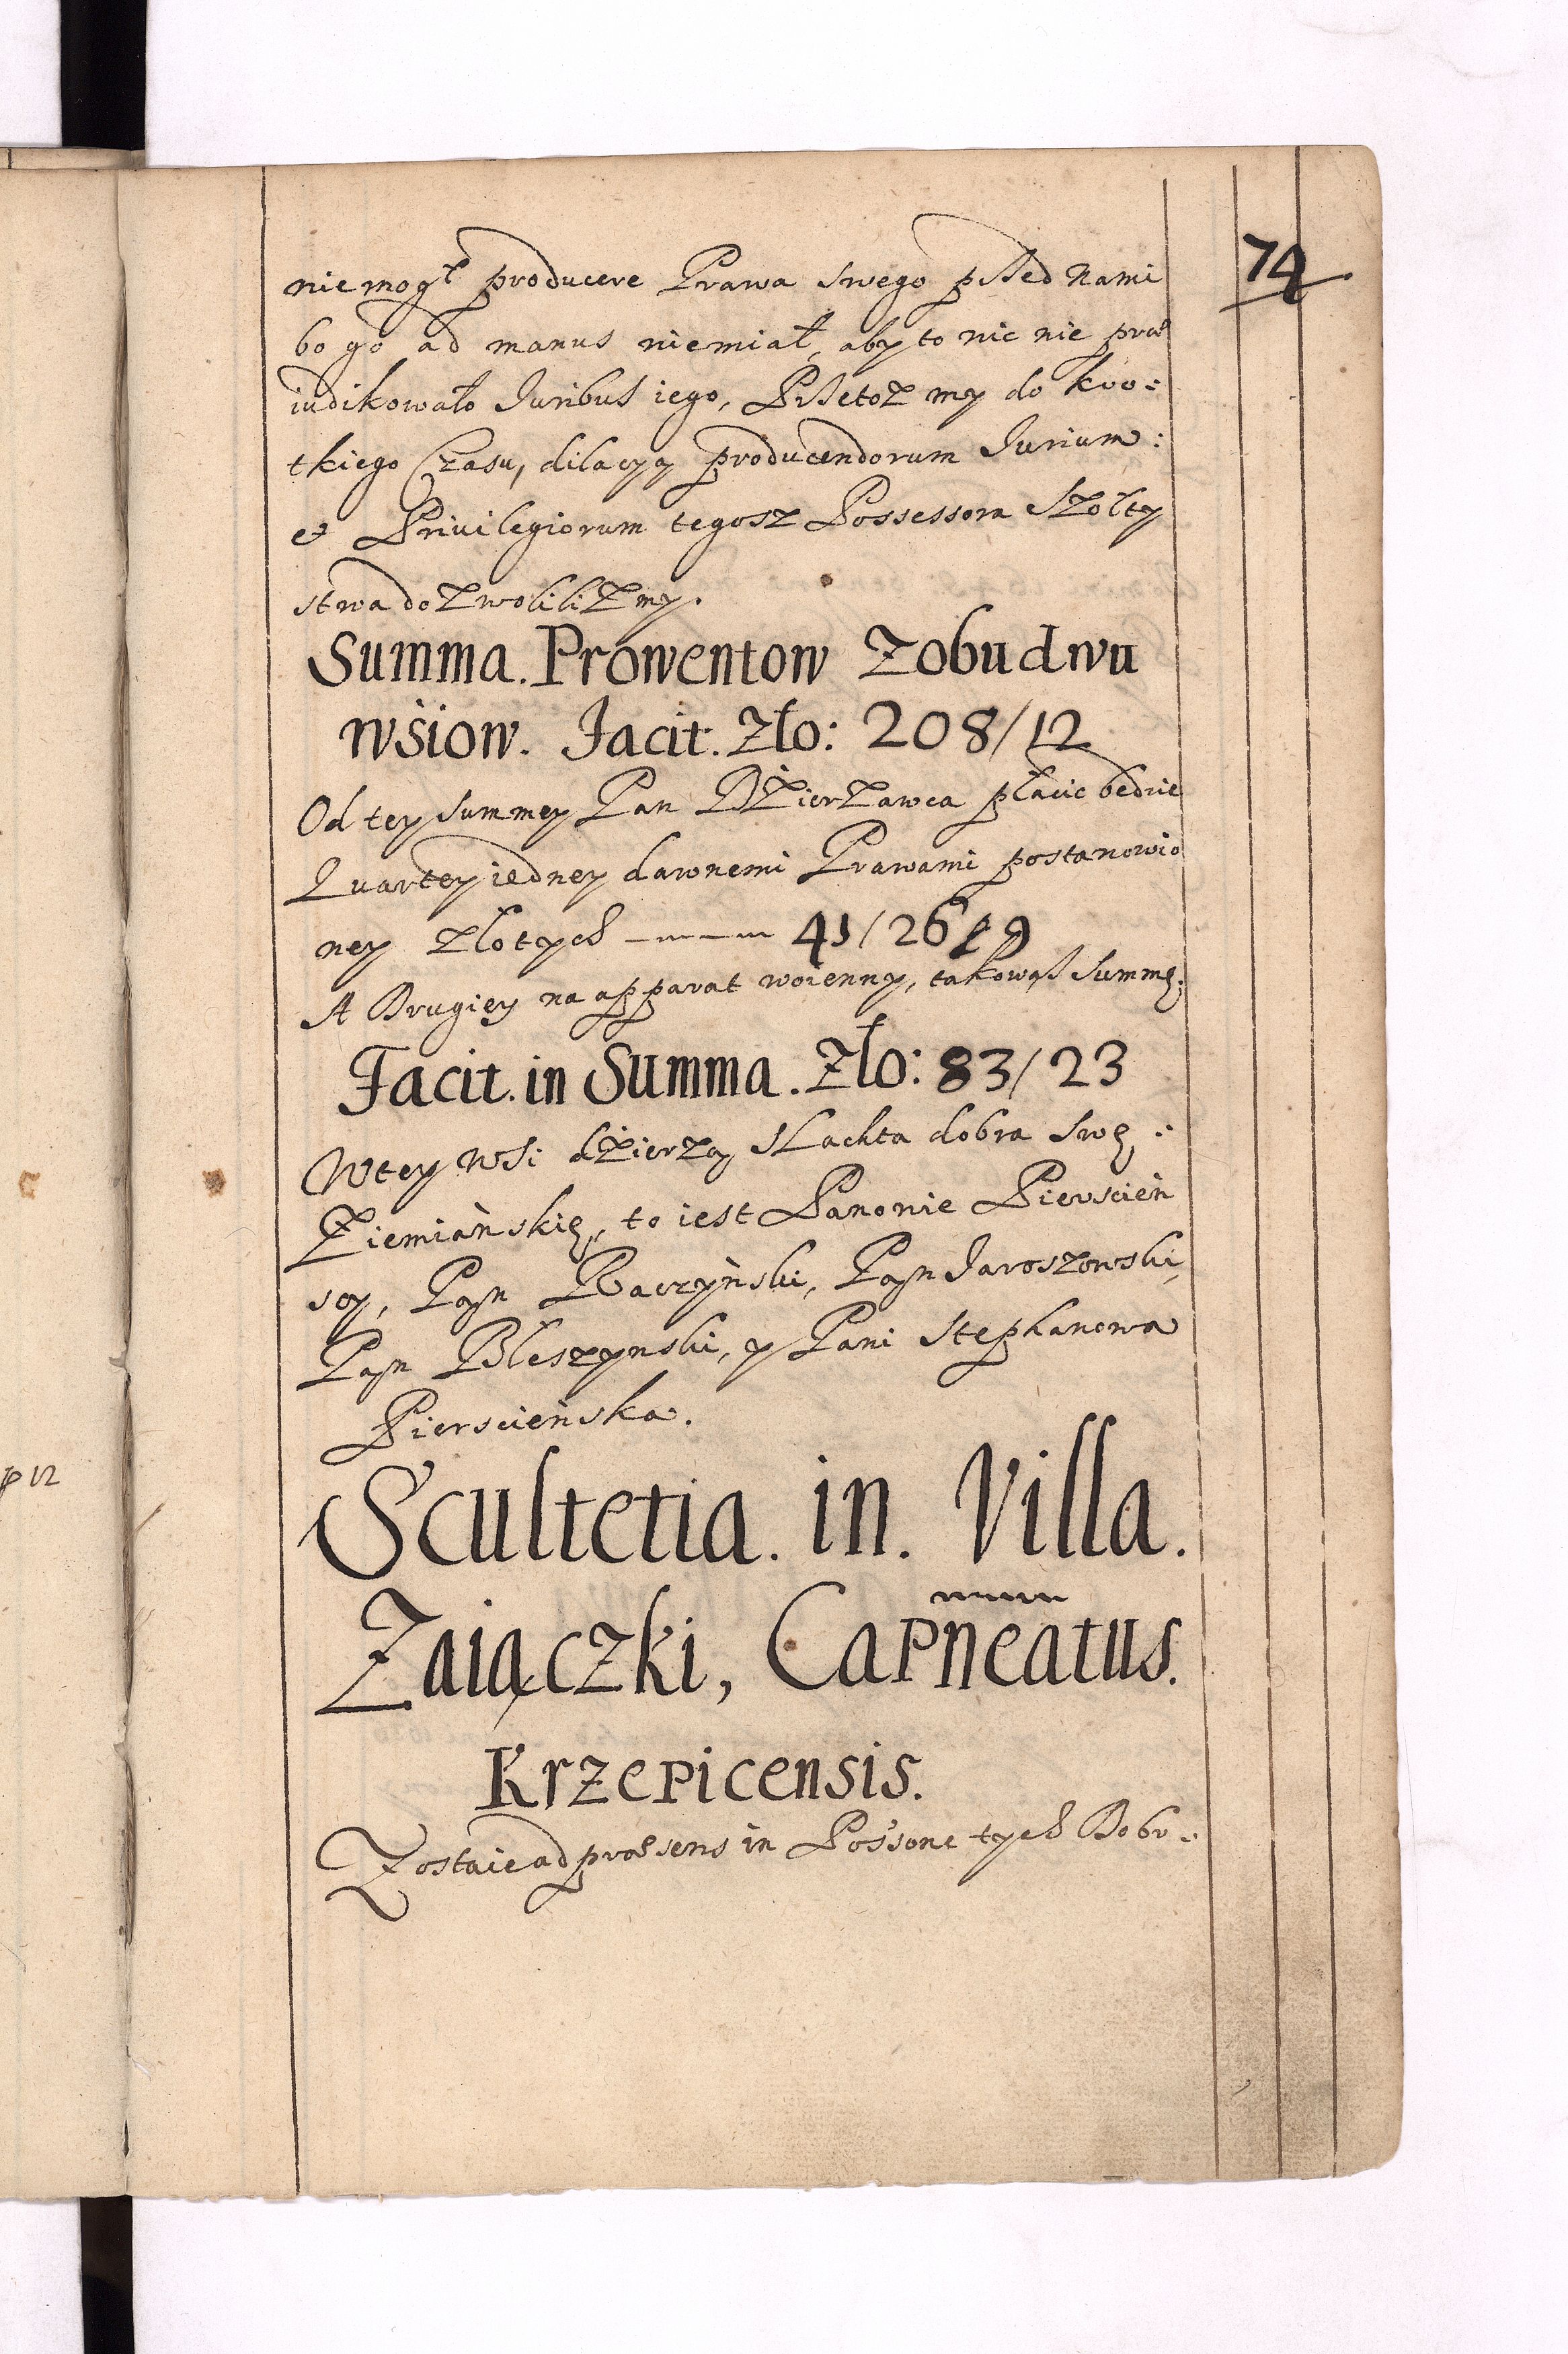 74
niemogł producere Prawa swego przed Nami
bo go ad manus niemiał, aby to nic nie præ
iudikowało Juribus iego, Przetoz my do kro=
tkiego Czasu, dilacyą producendorum Jurium:
et Privilegiorum tegosz Possessora Szołty
stwa dozwolilizmy.
Summa. Prowentow Zobudwu
wsiow. Facit. Zło: 208/12
Od tey summey Pan Dzierzawca płacic będzie
Quartey iedney dawnemi Prawami postanowio
ney Złotych 41/26/9
A Drugiey na apparat woienny, takowąsz Summę:
Facit. in Summa. Zło: 83/23
W tey wsi dzierzą Slachta dobra swę:
Ziemiańskię, to iest Panowie Pierscień
scy, Pan Raczyński, Pan Jaroszowski,
Pan Bleszynski, y Pani Stephanowa
Pierscieńska.
Scultetia. in. Villa.
Zaiączki, Capneatus.
Krzepicensis.
Zostaie ad præsens in Possone tych Dobr=
12